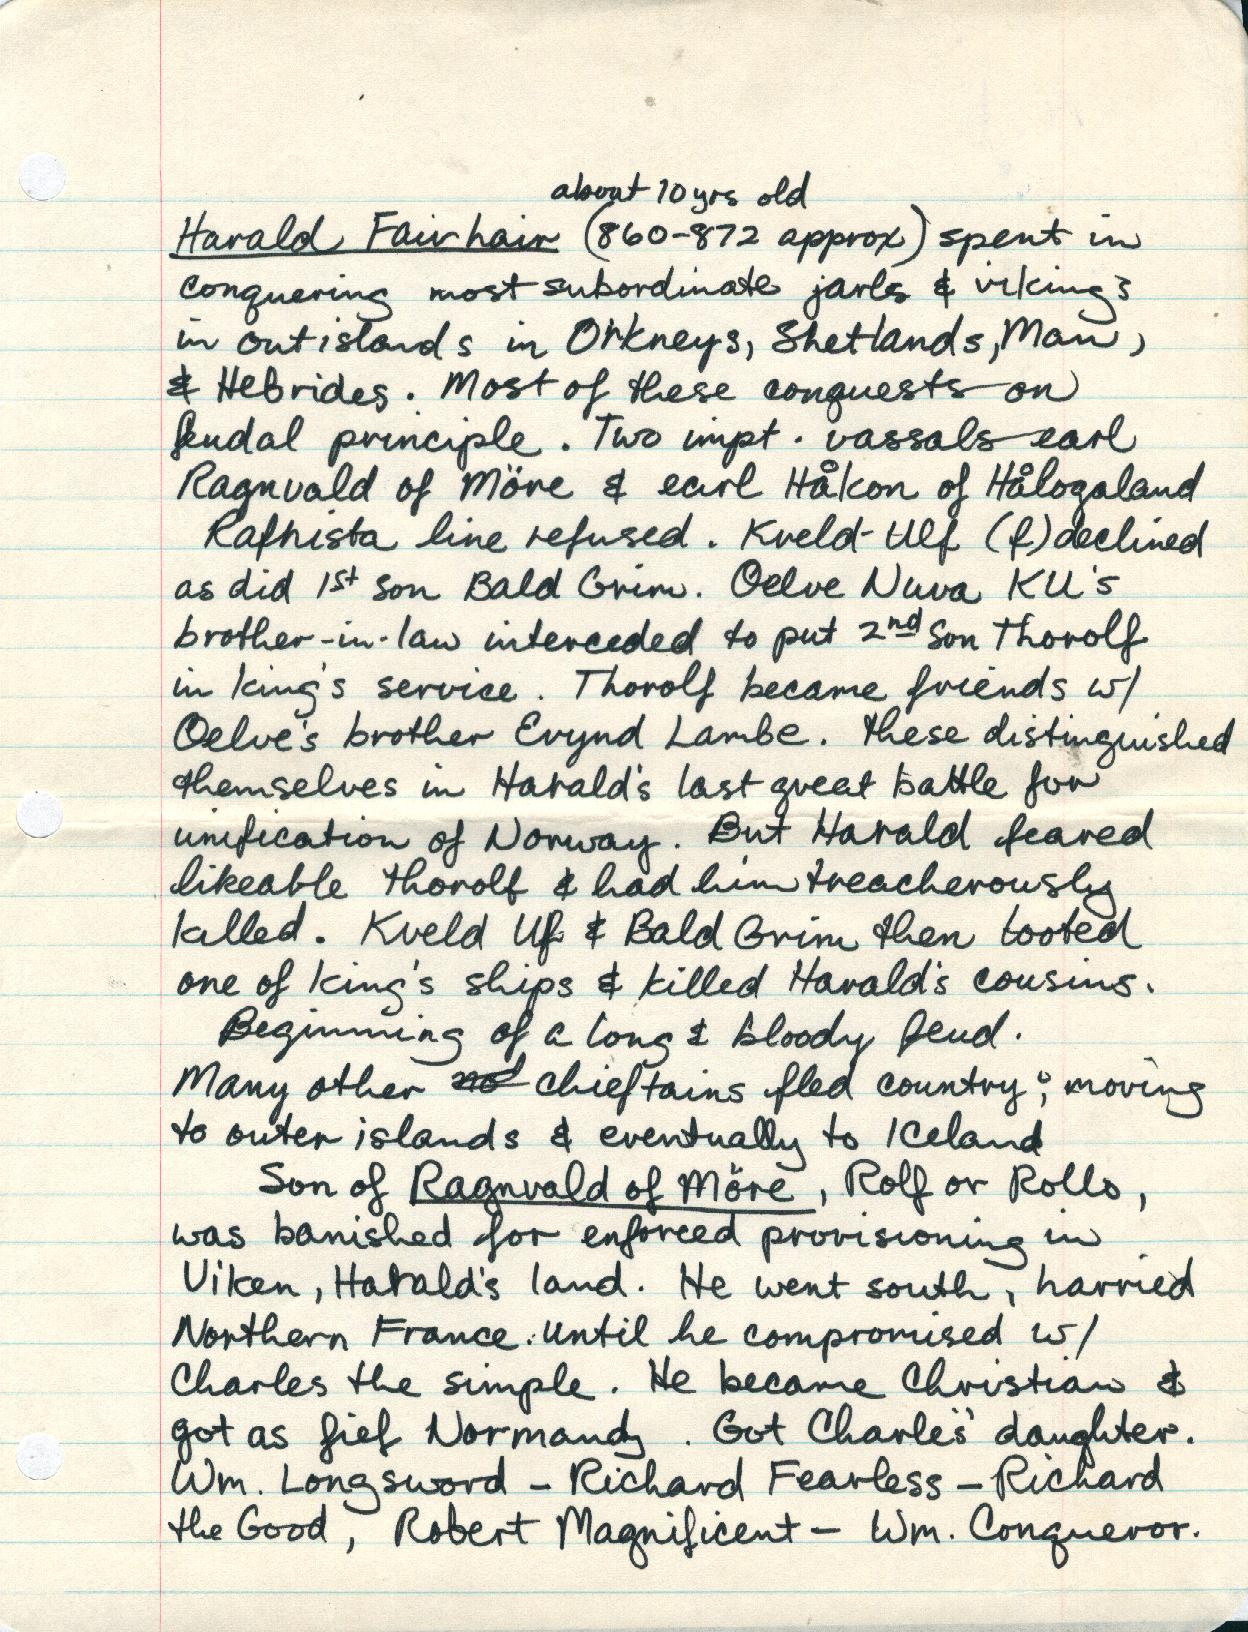 about 10 yrs old
Harald Fairhair (860-872 approx) spent in
conquering most subordinate jarls & vikings
in out islands in Orkneys, Shetlands, Man,
& Hebrides. Most of these conquests on
feudal principle. Two impt. vassals - earl
Ragnvald of Möre & earl Håkon of Hålogaland
Rafnista line refused. Kveld-Ulf (f) declined
as did 1st son Bald Grim. Oelve Nuva KU's
brother-in-law interceded to put 2nd son Thorolf
in king's service. Thorolf became friends w/
Oelve's brother Evynd Lambe. These distinguished
themselves in Harald's last great battle for
unification of Norway. But Harald feared
likeable Thorolf & had him treacherously
killed. Kveld Ulf & Bald Grim then looted
one of king's ships & killed Harald's cousins.
Beginning of a long & bloody feud.
Many other chieftains fled country; moving
to outer islands & eventually to Iceland
Son of Ragnvald of Möre, Rolf or Rollo,
was banished for enforced provisioning in
Viken, Harald's land. He went south, harried
Northern France until he compromised w/
Charles the simple. He became Christian &
got as fief Normandy. Got Charles' daughter.
Wm. Longsword - Richard Fearless - Richard
the Good, Robert Magnificent - Wm. Conqueror.